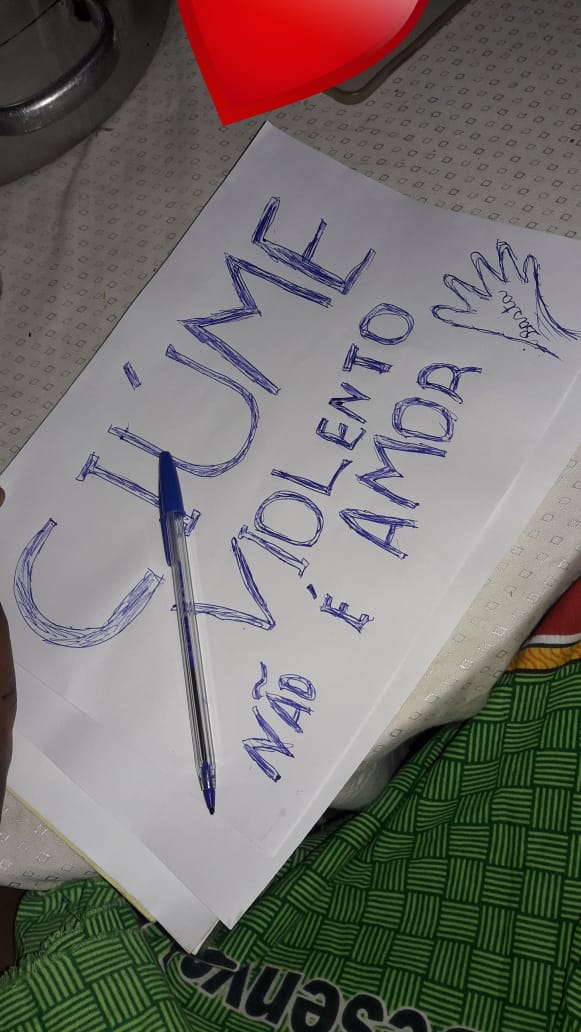 CIÚME
VIOLENTO
NÃO É AMOR
Basta
esenvo